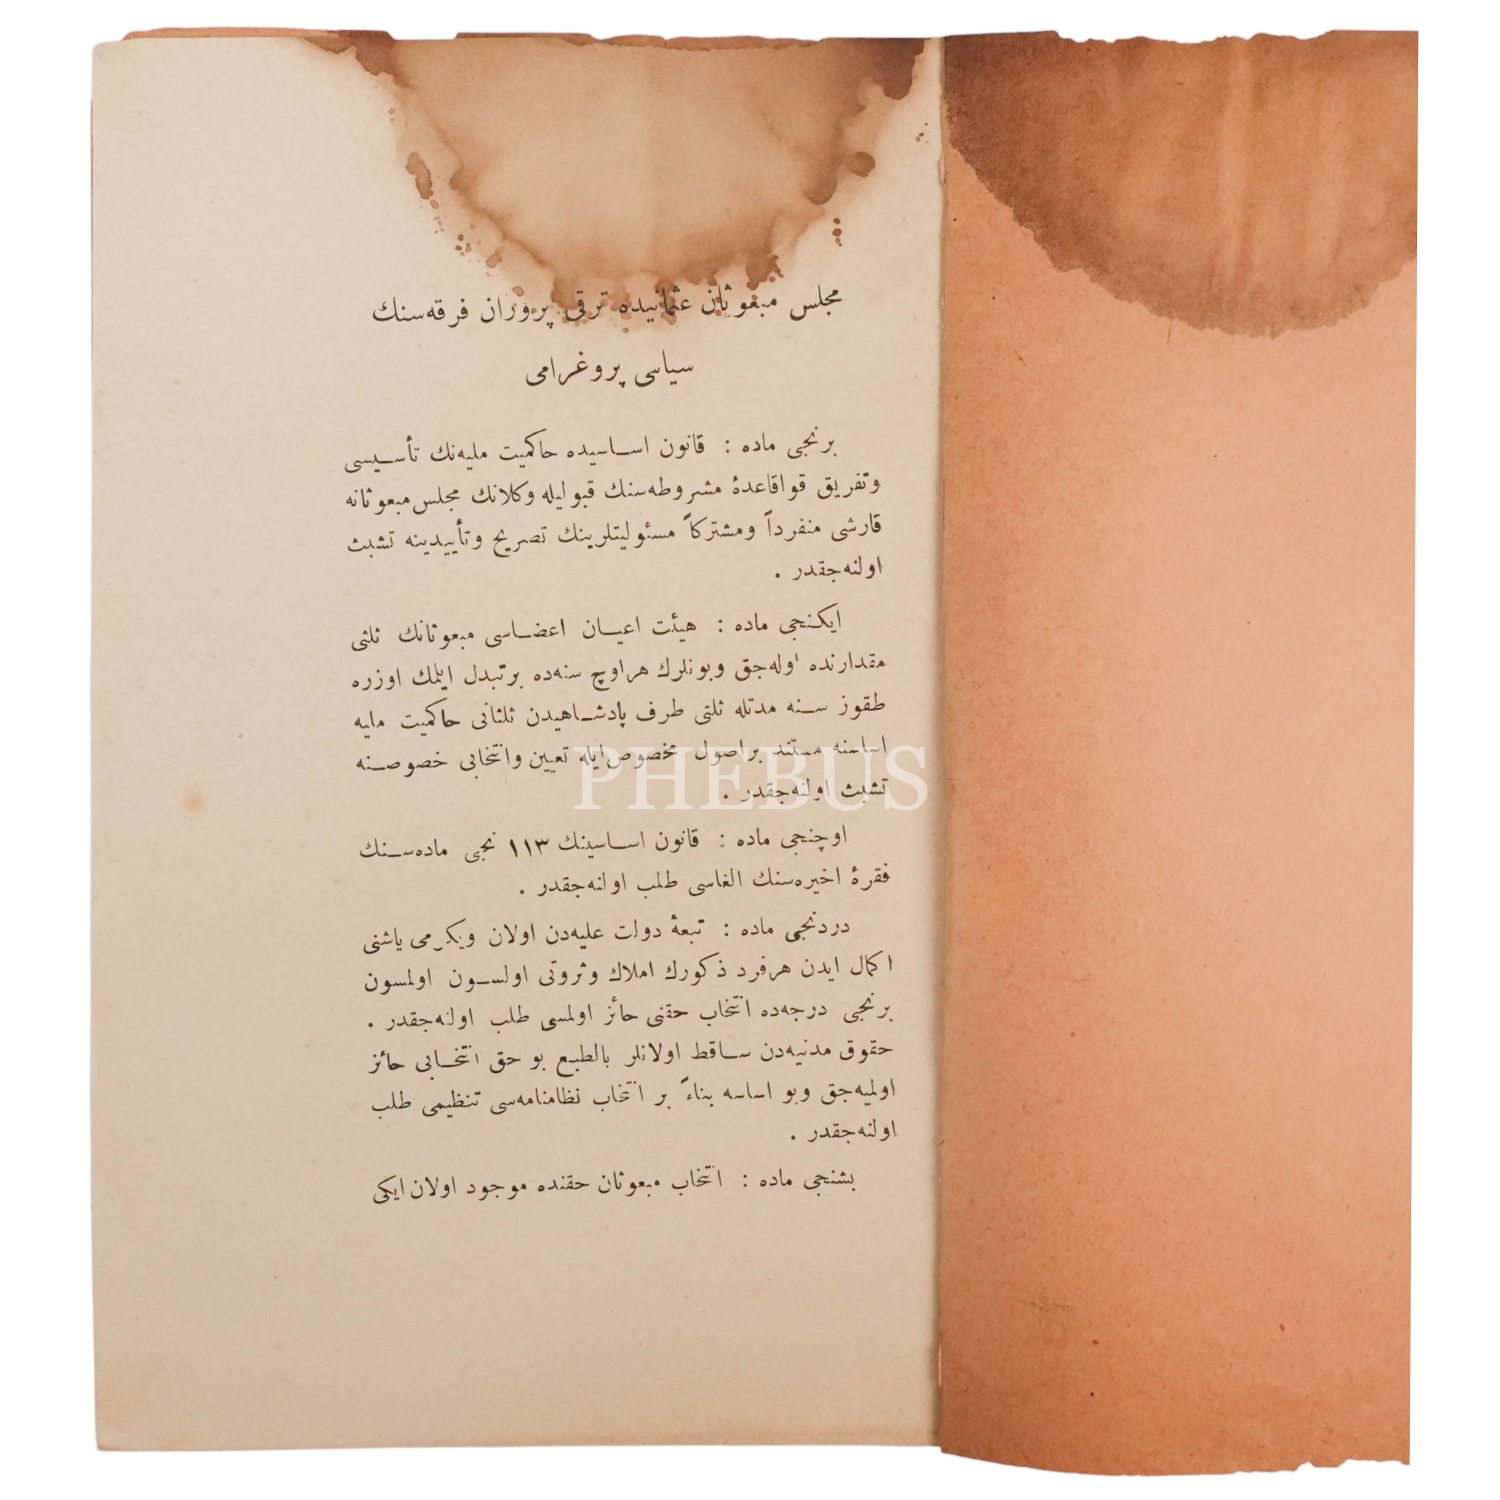 مجلس مبعوثان عثمانیده ترقی پروران فرقه‌سنك
سیاسی پروغرامی
برنجی ماده : قانون اساسیده حاكمیت ملیه‌نك تأسیسی
وتفریق قواقاعدۀ مشروطه‌سنك قبولیله وكلانك مجلس مبعوثانه
قارشی منفرداً ومشتركاً مسئولیتلرینك تصریح وتأییدینه تشبث
اولنه‌جقدر .
ایكنجی ماده : هیئت اعیان اعضاسی مبعوثانك ثلثی
مقدارنده اوله‌جق وبونلرك هراوچ سنه‌ده برتبدل ایتمك اوزره
طقوز سنه مدتله ثلثی طرف پادشاهیدن ثلثانی حاكمیت ملیه
اساسنه مستند براصول مخصوص‌ایله تعیین وانتخابی خصوصنه
تشبث اولنه‌جقدر .
PHEBUS
اوچنجی ماده : قانون اساسینك ۱۱۳ نجی ماده‌سنك
فقرۀ اخیره‌سنك الغاسی طلب اولنه‌جقدر .
دردنجی ماده : تبعۀ دولت علیه‌دن اولان ویكرمی یاشنی
اكمال ایدن هرفرد ذكورك املاك وثروتی اولسون اولمسون
برنجی درجه‌ده انتخاب حقنی حائز اولمسی طلب اولنه‌جقدر .
حقوق مدنیه‌دن ساقط اولانلر بالطبع بو حق انتخابی حائز
اولمیه‌جق وبو اساسه بناءً بر انتخاب نظامنامه‌سی تنظیمی طلب
اولنه‌جقدر .
بشنجی ماده : انتخاب مبعوثان حقنده موجود اولان ایكی